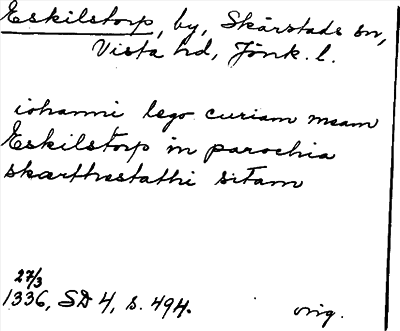 Eskilstorp, by, Skärstads sn,
Vista hd, Jönk. l.
iohanni lego curiam meam
Eskilstorp in parochia
skærthestathi sitam
27/3
1336, SD 4, s. 494. orig.